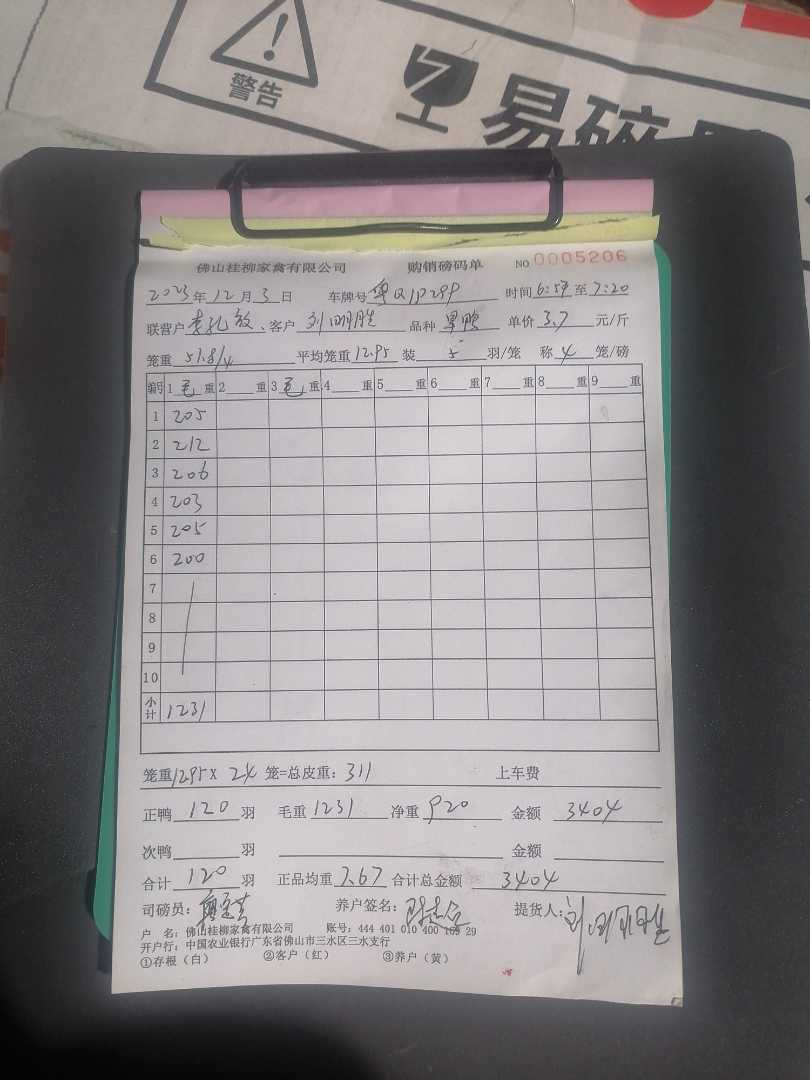 警告
易碎
佛山桂柳家禽有限公司 购销磅码单 NO 0005206
2023年12月3日 车牌号 粤Q1P299 时间 6:59 至 7:20
联营户 、客户 刘明胜 品种 单价 3.7 元/斤
笼重 51.8/4 平均笼重 12.95 装 5 羽/笼 称 4 笼/磅
编号 1 毛 重 2 重 3 毛 重 4 重 5 重 6 重 7 重 8 重 9 重
1 205
2 212
3 206
4 203
5 205
6 200
7
8
9
10
小计 1231
笼重 12.95 X 24 笼=总皮重: 311 上车费
正鸭 120 羽 毛重 1231 净重 920 金额 3404
次鸭 羽 金额
合计 120 羽 正品均重 7.67 合计总金额 3404
司磅员: 养户签名: 提货人:
户 名: 佛山桂柳家禽有限公司 账号: 444 401 010 400 169 29
开户行: 中国农业银行广东省佛山市三水区三水支行
①存根（白） ②客户（红） ③养户（黄）